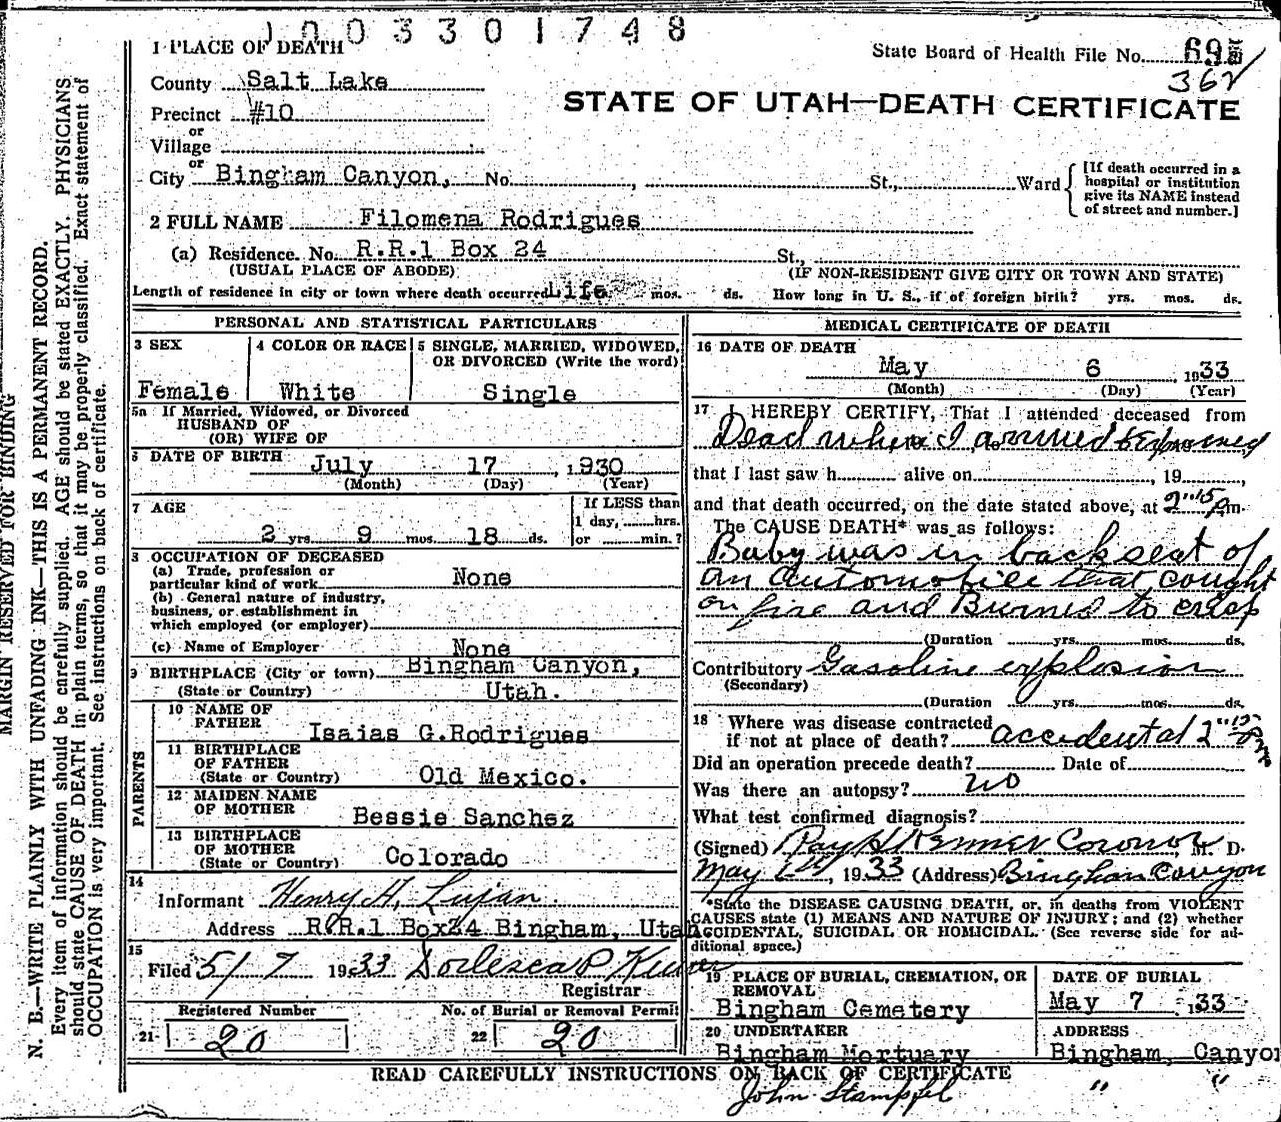 1003301748
1 PLACE OF DEATH
State Board of Health File No. 69
362
County Salt Lake
STATE OF UTAH—DEATH CERTIFICATE
Precinct #10
or
Village
or
City Bingham Canyon, No. , St., Ward
[If death occurred in a hospital or institution give its NAME instead of street and number.]
2 FULL NAME Filomena Rodrigues
(a) Residence. No. R.R.1 Box 24 St.,
(USUAL PLACE OF ABODE) (IF NON-RESIDENT GIVE CITY OR TOWN AND STATE)
Length of residence in city or town where death occurred Life mos. ds. How long in U. S., if of foreign birth? yrs. mos. ds.
PERSONAL AND STATISTICAL PARTICULARS
3 SEX
Female
4 COLOR OR RACE
White
5 SINGLE, MARRIED, WIDOWED,
OR DIVORCED (Write the word)
Single
5a If Married, Widowed, or Divorced
HUSBAND OF
(OR) WIFE OF
6 DATE OF BIRTH July 17, 1930
(Month) (Day) (Year)
7 AGE
2 yrs. 9 mos. 18 ds.
If LESS than
1 day, hrs.
or min.?
8 OCCUPATION OF DECEASED
(a) Trade, profession or
particular kind of work None
(b) General nature of industry,
business, or establishment in
which employed (or employer)
(c) Name of Employer None
9 BIRTHPLACE (City or town) Bingham Canyon,
(State or Country) Utah.
PARENTS
10 NAME OF
FATHER Isaias G.Rodrigues
11 BIRTHPLACE
OF FATHER
(State or Country) Old Mexico.
12 MAIDEN NAME
OF MOTHER Bessie Sanchez
13 BIRTHPLACE
OF MOTHER
(State or Country) Colorado
14
Informant Henry H. Lujan
Address R.R.1 Box24 Bingham, Utah.
15
Filed 5/7 1933
Registrar
Registered Number No. of Burial or Removal Permit
21 20 22 20
MEDICAL CERTIFICATE OF DEATH
16 DATE OF DEATH
May 6, 1933
(Month) (Day) (Year)
17 I HEREBY CERTIFY, That I attended deceased from
Dead when I arrived
that I last saw h alive on , 19 ,
and that death occurred, on the date stated above, at 2"15 Pm.
The CAUSE DEATH* was as follows:
Baby was in back seat of
an automobile that caught
on fire and Burned to crisp
(Duration yrs. mos. ds.
Contributory Gasoline explosion
(Secondary)
(Duration yrs. mos. ds.
18 Where was disease contracted
if not at place of death? accidental 2"15 Pm
Did an operation precede death? Date of
Was there an autopsy? no
What test confirmed diagnosis?
(Signed) Ray H Kenner Coronor, M. D.
May 6, 1933 (Address) Bingham Canyon
*State the DISEASE CAUSING DEATH, or, in deaths from VIOLENT
CAUSES state (1) MEANS AND NATURE OF INJURY; and (2) whether
ACCIDENTAL, SUICIDAL OR HOMICIDAL. (See reverse side for ad-
ditional space.)
19 PLACE OF BURIAL, CREMATION, OR
REMOVAL
Bingham Cemetery
DATE OF BURIAL
May 7 1933
20 UNDERTAKER
Bingham Mortuary
ADDRESS
Bingham, Canyon
READ CAREFULLY INSTRUCTIONS ON BACK OF CERTIFICATE
John Stampfel " "
MARGIN RESERVED FOR BINDING
N. B.—WRITE PLAINLY WITH UNFADING INK—THIS IS A PERMANENT RECORD.
Every item of information should be carefully supplied. AGE should be stated EXACTLY. PHYSICIANS
should state CAUSE OF DEATH in plain terms, so that it may be properly classified. Exact statement of
OCCUPATION is very important. See instructions on back of certificate.